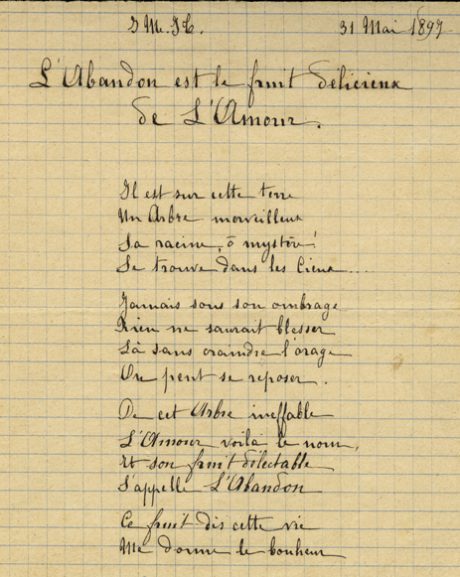 J.M.J.T. 31 Mai 1897
L'Abandon est le fruit délicieux
de L'Amour.
Il est sur cette terre
Un Arbre merveilleux
Sa racine, ô mystère !
Se trouve dans les Cieux....
Jamais sous son ombrage
Rien ne saurait blesser
Là sans craindre l'orage
On peut se reposer.
De cet Arbre ineffable
L'Amour voilà le nom,
Et son fruit délectable
S'appelle L'Abandon
Ce fruit dès cette vie
Me donne le bonheur